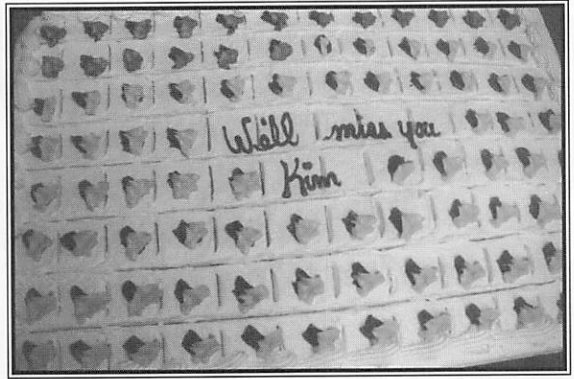 We'll miss you
Kim